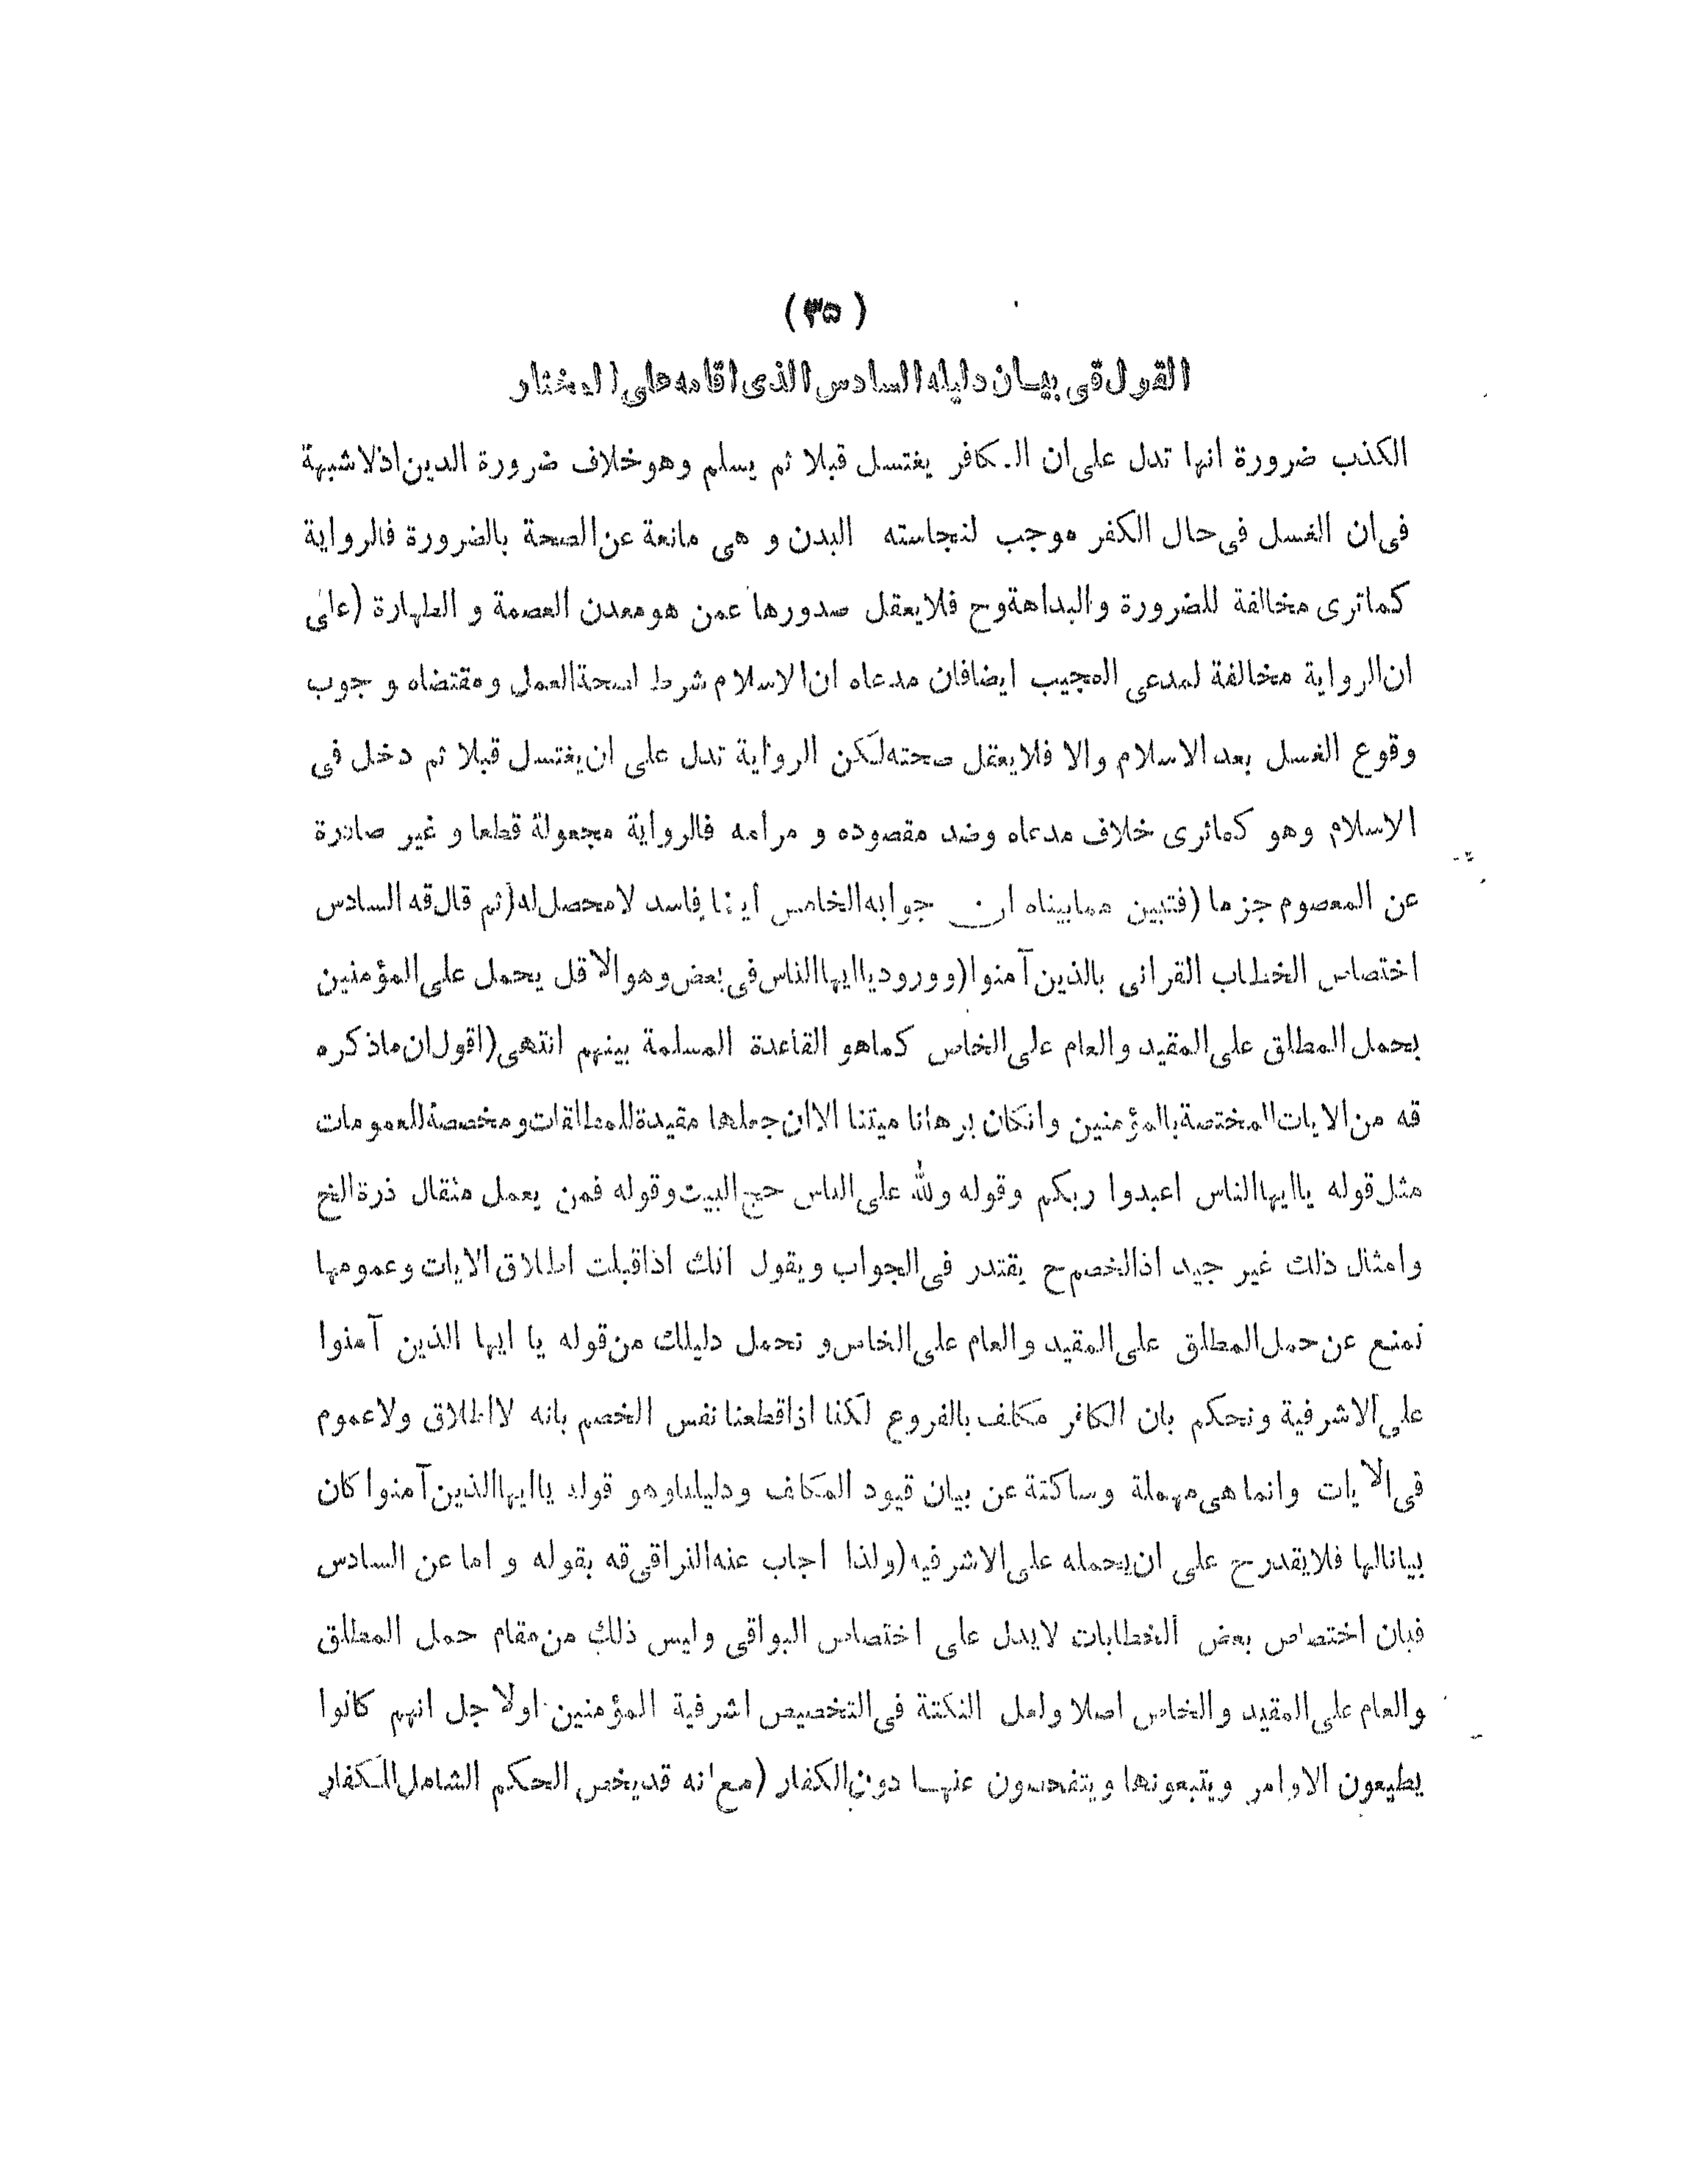 (۳۵)
القول فی بیان دلیله السادس الذی اقامه علی المختار
الکذب ضرورة انها تدل علی ان الکافر یغتسل قبلا ثم یسلم وهو خلاف ضرورة الدین اذلا شبهة
فی ان الغسل فی حال الکفر موجب لنجاسته البدن و هی مانعة عن الصحة بالضرورة فالروایة
کماتری مخالفة للضرورة والبداهة وح فلایعقل صدورها عمن هو معدن العصمة و الطهارة (علی
ان الروایة مخالفة لمدعی المجیب ایضافان مدعاه ان الاسلام شرط لصحة العمل ومقتضاه و جوب
وقوع الغسل بعد الاسلام والا فلایعقل صحته لکن الروایة تدل علی ان یغتسل قبلا ثم دخل فی
الاسلام وهو کماتری خلاف مدعاه وضد مقصوده و مرامه فالروایة مجعولة قطعا و غیر صادرة
عن المعصوم جزما (فتبین ممابیناه ان جوابه الخامس ایضا فاسد لامحصل له (ثم قال قه السادس
اختصاص الخطاب القرانی بالذین آمنوا (وورود یاایها الناس فی بعض وهو الاقل یحمل علی المؤمنین
بحمل المطلق علی المقید والعام علی الخاص کماهو القاعدة المسلمة بینهم انتهی (اقول ان ماذکره
قه من الایات المختصة بالمؤمنین وانکان برهانا میتنا الاان جعلها مقیدة للمطلقات ومخصصة للعمومات
مثل قوله یاایها الناس اعبدوا ربکم وقوله ولله علی الناس حج البیت وقوله فمن یعمل مثقال ذرة الخ
وامثال ذلك غیر جید اذالخصم ح یقتدر فی الجواب ویقول انك اذاقبلت اطلاق الایات وعمومها
نمنع عن حمل المطلق علی المقید والعام علی الخاص و نحمل دلیلك من قوله یا ایها الذین آمنوا
علی الاشرفیة ونحکم بان الکافر مکلف بالفروع لکنا اذاقطعنا نفس الخصم بانه لااطلاق ولاعموم
فی الایات وانما هی مهملة وساکتة عن بیان قیود المکلف ودلیلناوهو قوله یاایها الذین آمنوا کان
بیانالها فلایقدر ح علی ان یحمله علی الاشرفیه (ولذا اجاب عنه النراقی قه بقوله و اما عن السادس
فبان اختصاص بعض الخطابات لایدل علی اختصاص البواقی ولیس ذلك من مقام حمل المطلق
والعام علی المقید والخاص اصلا ولعل النکتة فی التخصیص اشرفیة المؤمنین اولاجل انهم کانوا
یطیعون الاوامر ویتبعونها ویتفحصون عنها دون الکفار (مع انه قدیخص الحکم الشامل للکفار